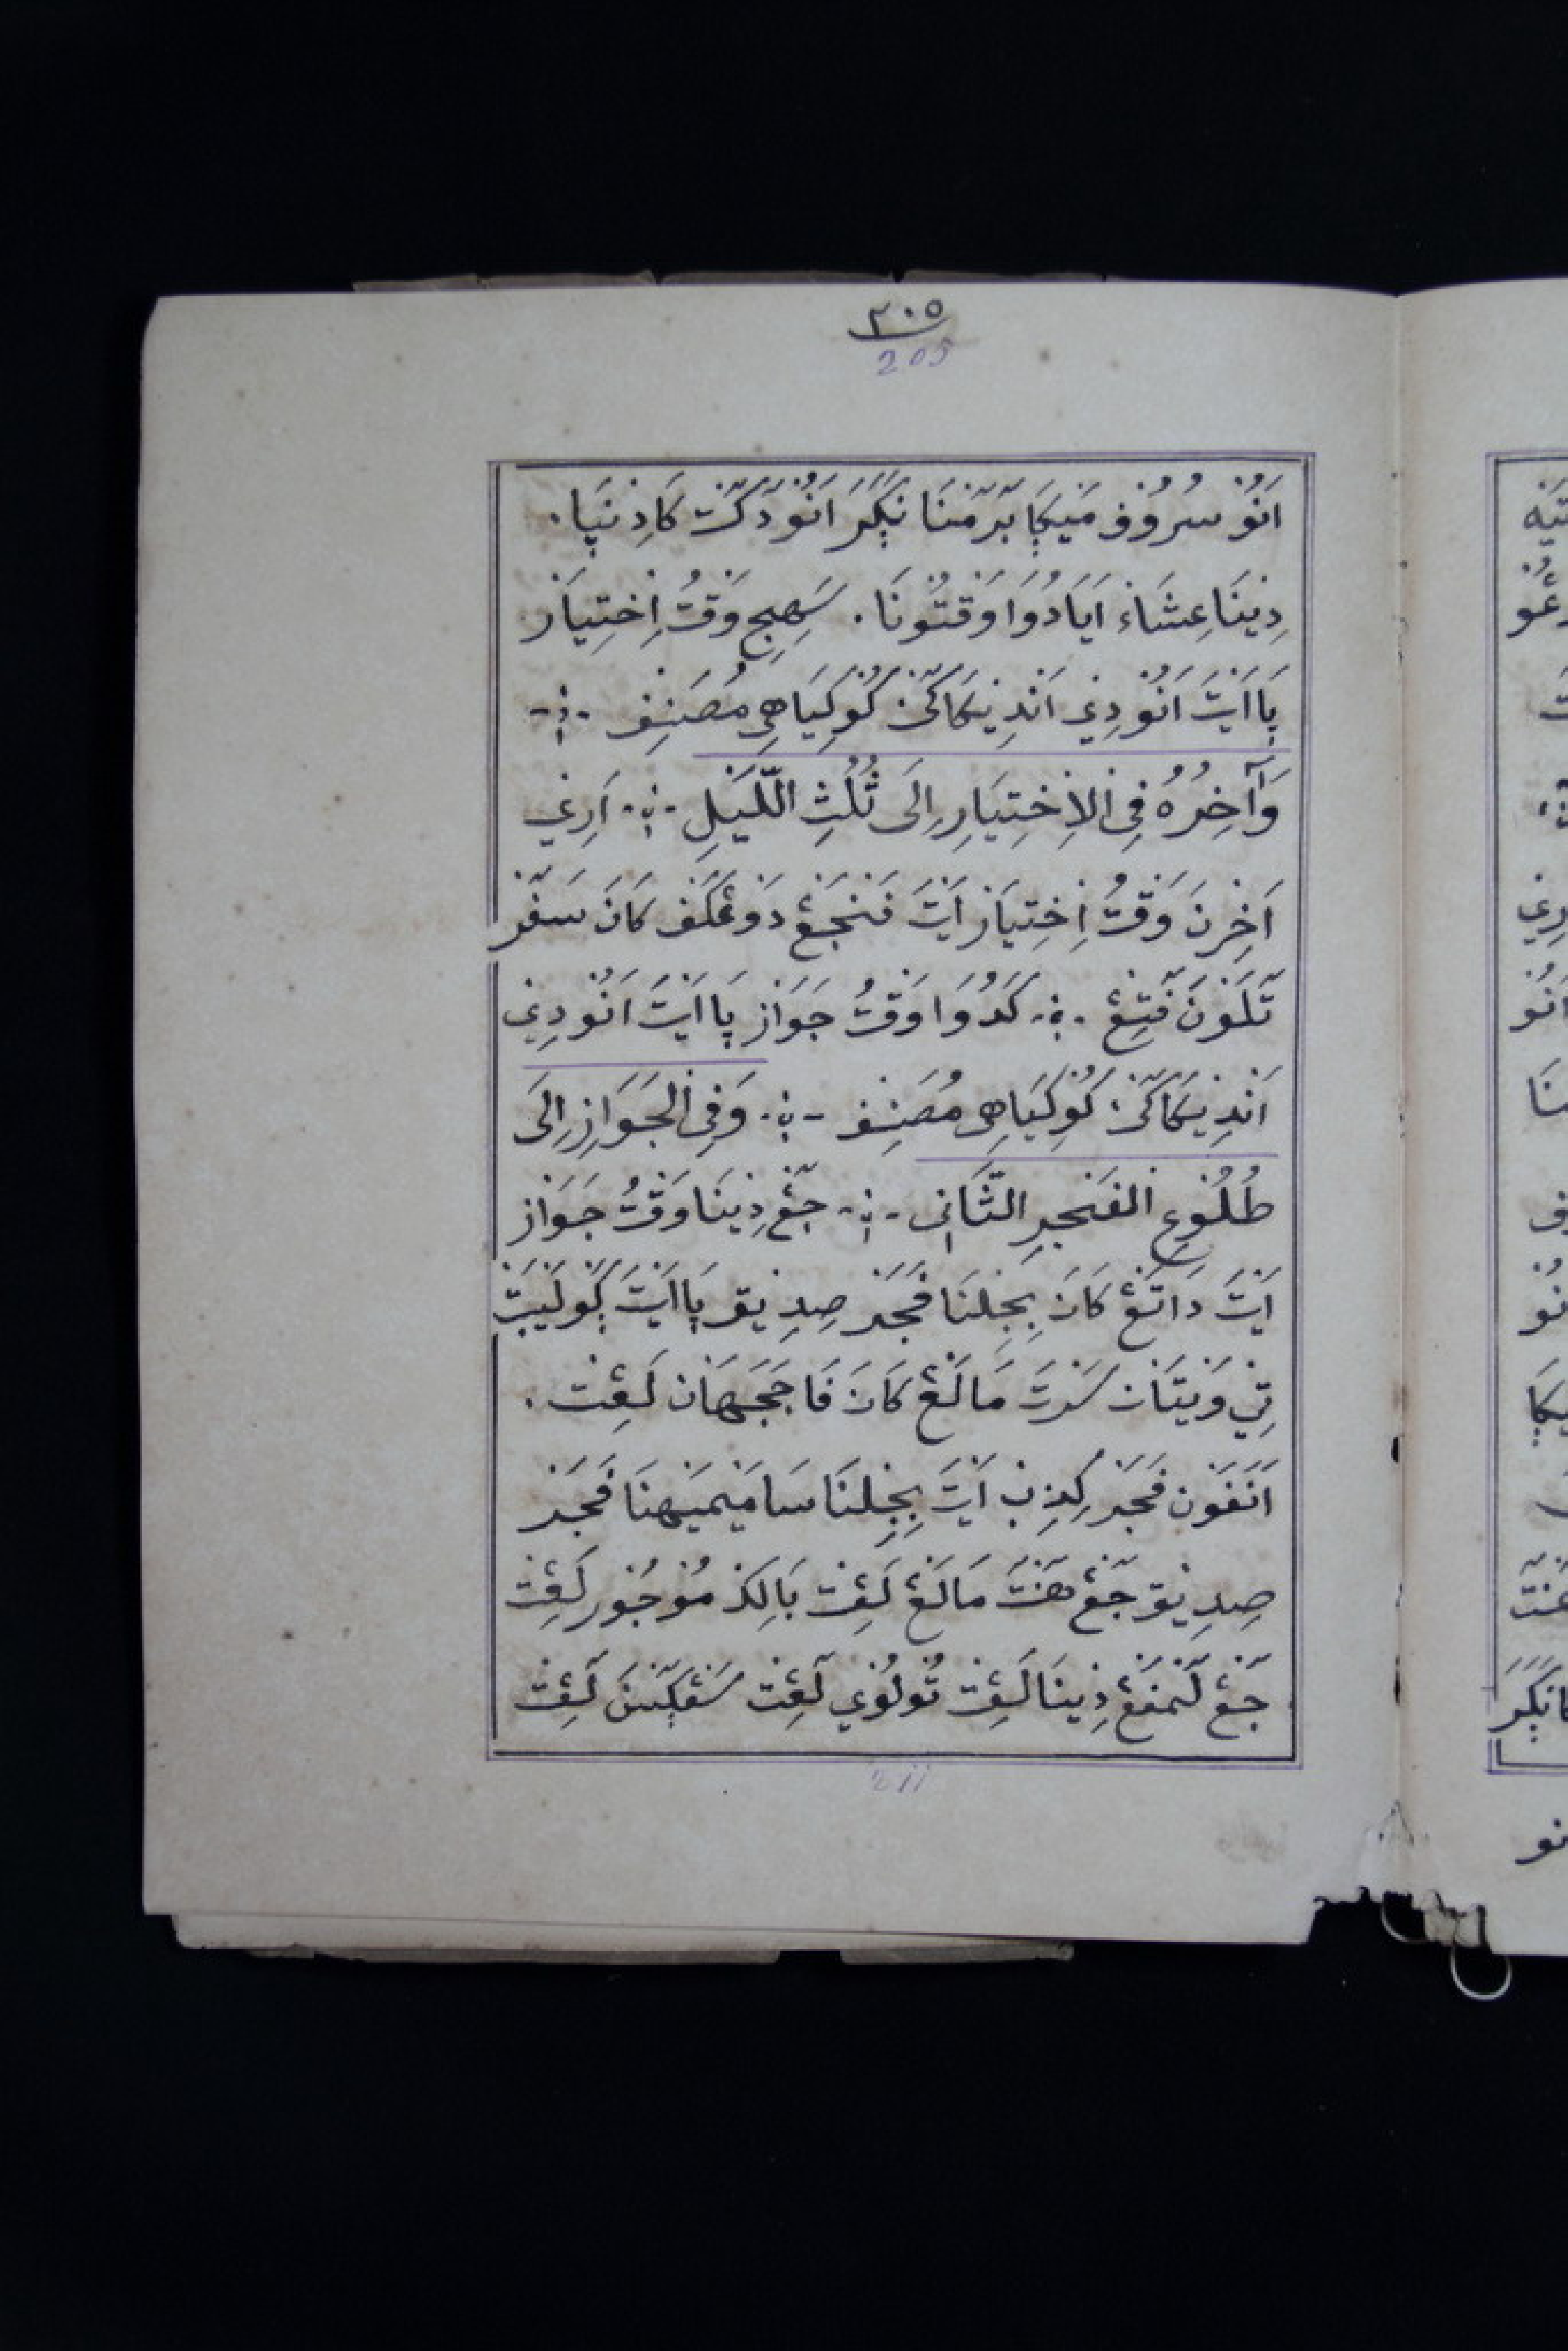 ٢٠٥
205
اَنُوْ سُرُوْفْ مَيكَݢَا بَرَمَّنَا نݢَكَرَ اَنُوْدَكَّتْ كَادِنِيَا.
دِيْنَا عِشَاءْ اَيَا دُوَا وَقْتُوْنَا. سَهِجِ وَقْتُ اِخْتِيَارْ
اَيْتَ اَنُوْدِيْ اَنْدِيْكَاكَنْ كُوْ كِيَاهِيْ مُصَنِفْ
وَآخِرُهُ فِى الْاِخْتِيَارِ اِلَى ثُلُثِ اللَّيْلِ اَرِيْ
اَخِرْنَ وَقْتُ اِخْتِيَارْ اَيْتَ فَنْجَڠْ دَوْڠْكَفْ كَانَ سَفَرْ
تَلُوْنَ فَتِڠْ كَدُوَا وَقْتُ جَوَازْ اَيْتَ اَنُوْدِيْ
اَنْدِيْكَاكَنْ كُوْ كِيَاهِيْ مُصَنِفْ وَفِى الْجَوَازِ اِلَى
طُلُوْعِ الْفَجْرِ الثَّانِى جَڠْ دِيْنَا وَقْتُ جَوَازْ
اَيْتَ دَاتَڠْ كَانَ بِجِلْنَا فَجَرْ صِدِيْقْ اَيْتَ
تِيْ وَيْتَانْ سَرْتَ مَالَڠْ كَانَ فَاجَجَهَانْ لَڠِتْ.
اَنَفُوْنْ فَجَرْ كِدِبْ اَيْتَ بِجِلْنَا سَامَيْمَيْهْنَا فَجَرْ
صِدِيْقْ جَڠْ هَنْتَ مَالَڠْ لَڠِتْ بَالِكَنْ مُوْجُوْرْ لَڠِتْ
جَڠْ لَمْفَڠْ دِيْنَا لَڠِتْ تُوْلُوْيْ لَڠِتْ لَڠِتْ
211